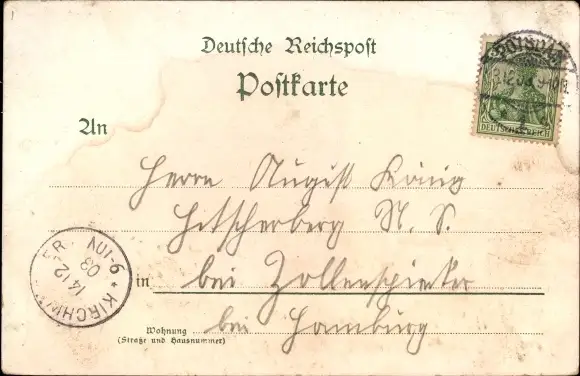 Deutsche Reichspost
Postkarte
POTSDAM
9-10N.
DEUTSCHES REICH
An
Herrn August König
Hitscherberg N. S.
in bei Zollenspieker
Wohnung
(Straße und Hausnummer)
bei Hamburg
KIRCHW
14 12
03
6-7N